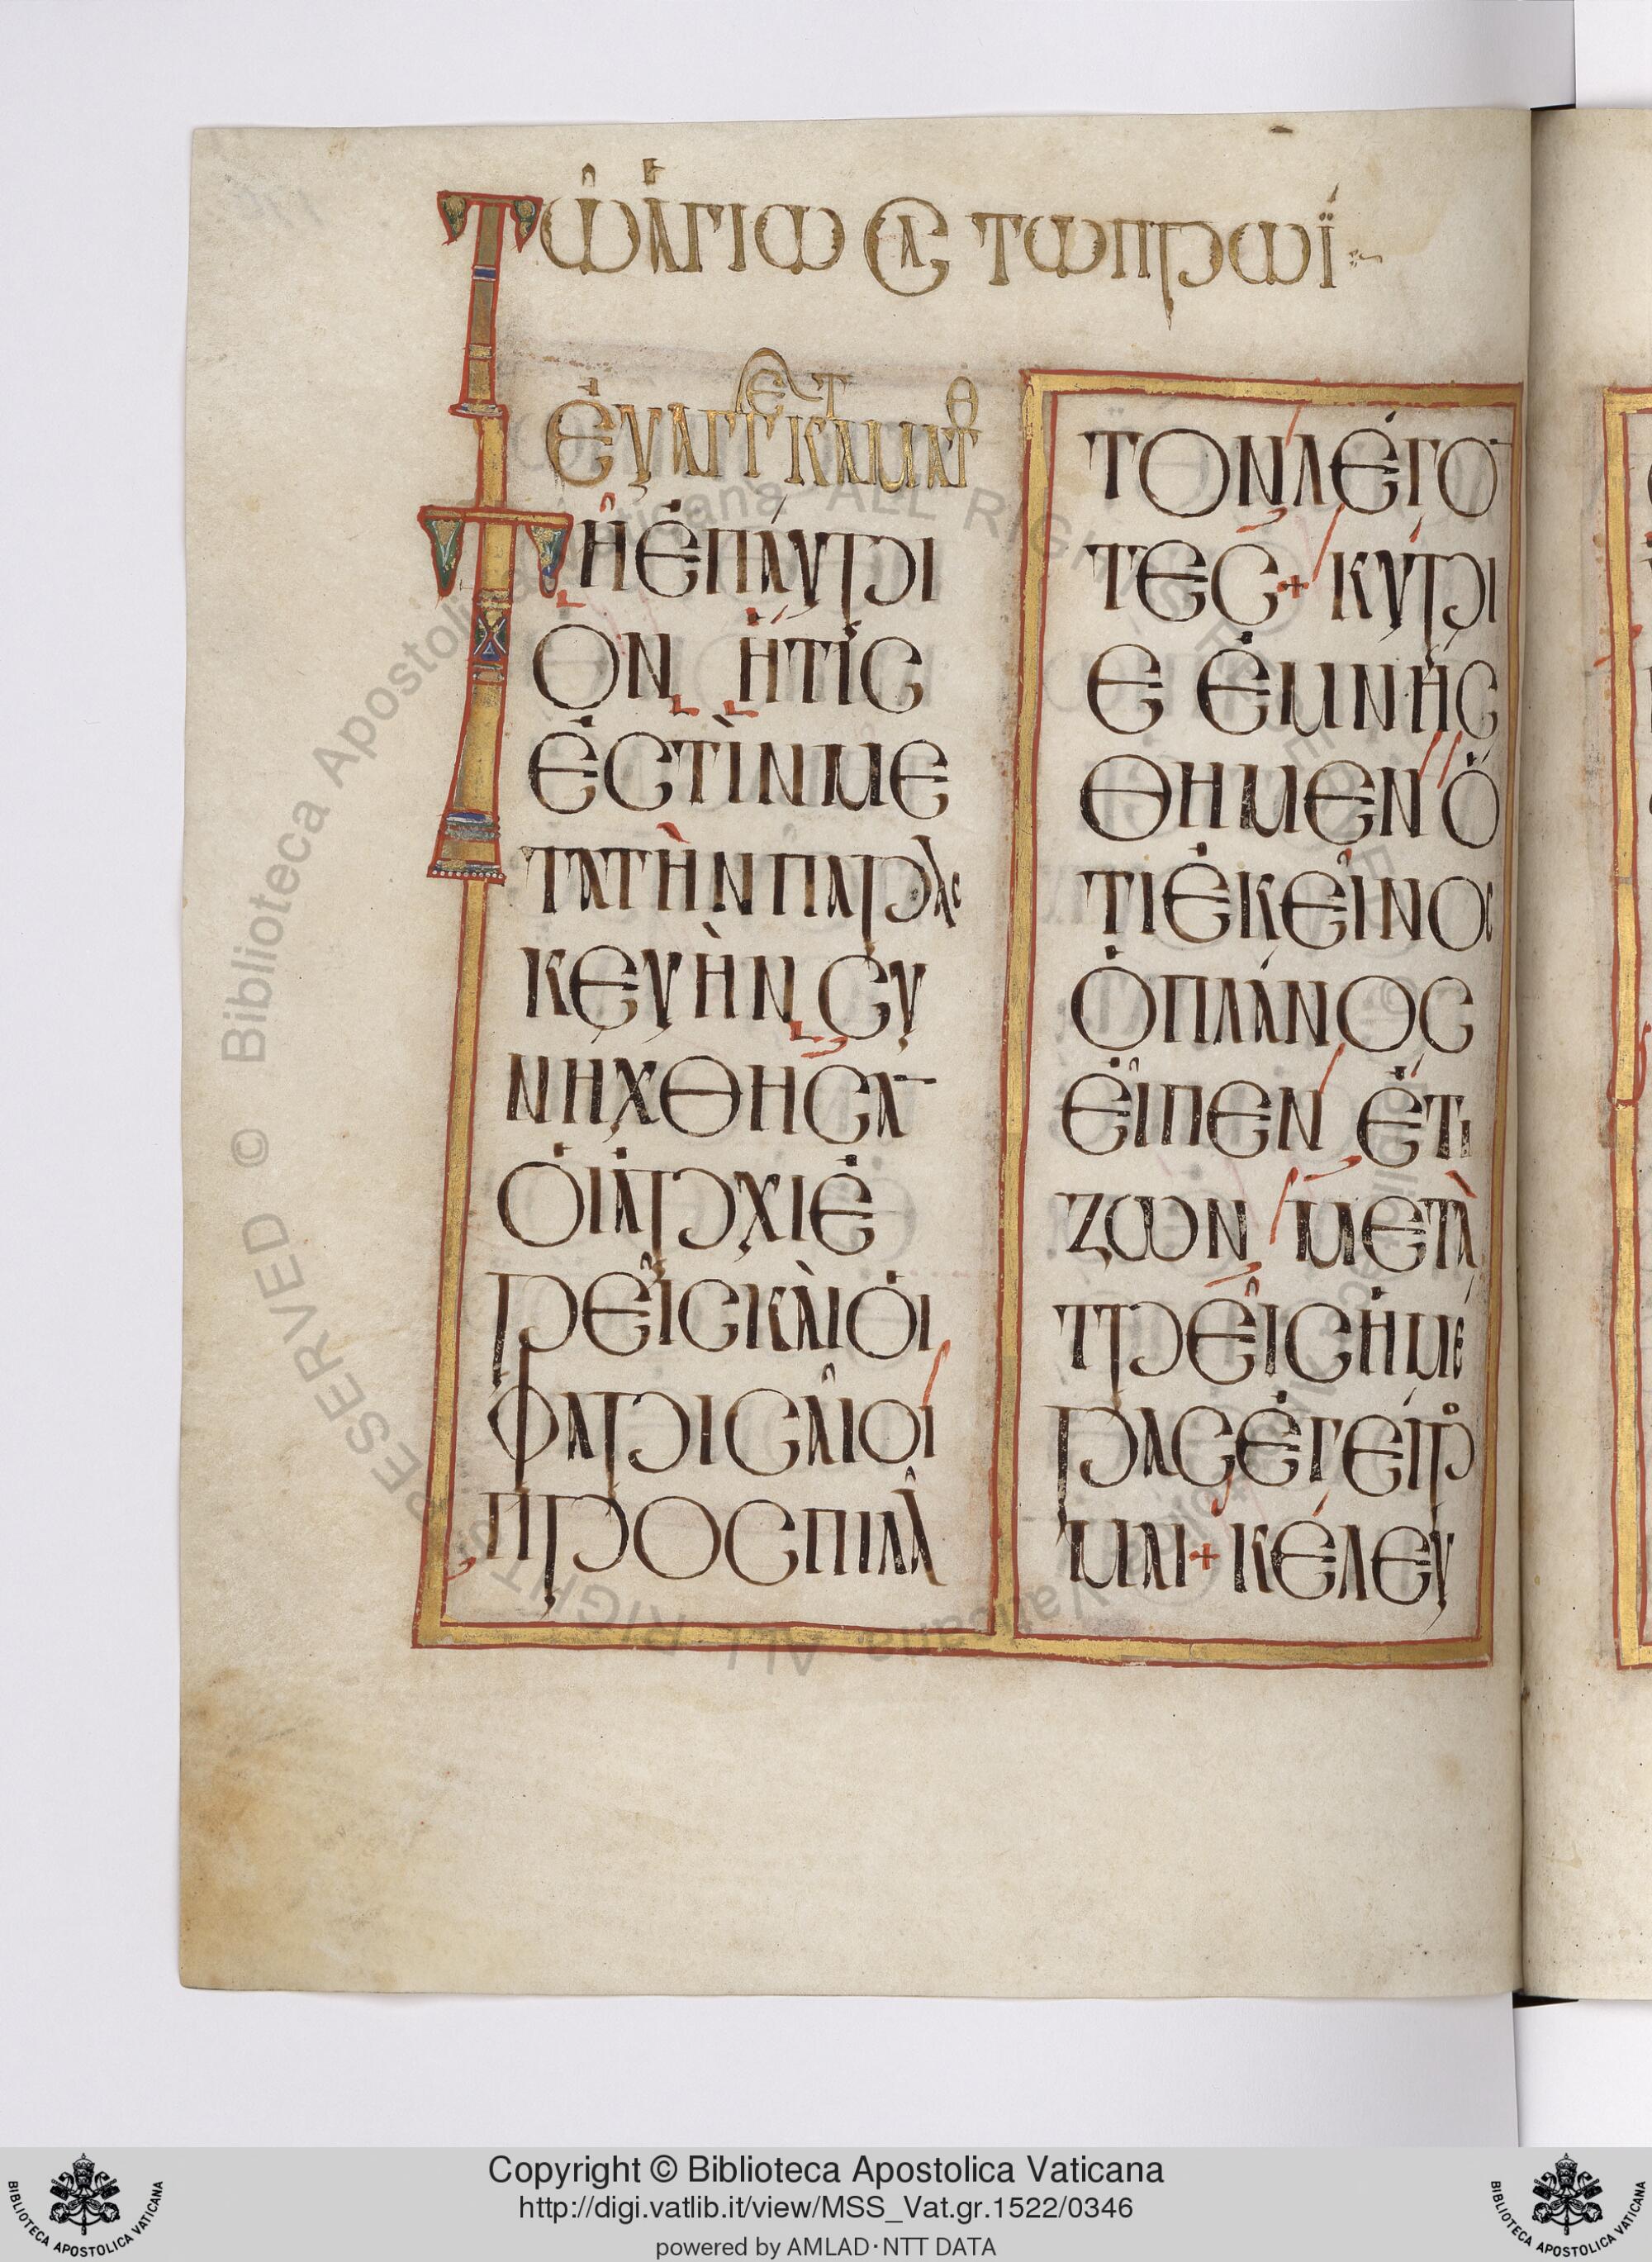 Τῶ ἁγίω Cα τωπρωΐ
ἐυαγγε κτ ματθ
Τῆ ἐπάυρι
ον ἥτις
ἐστὶν με
τατὴν παρὰσ
κευὴν συ
νήχθησα̅
ὁι ἀρχιε
ρεῖς καὶ ὁι
φαρισᾶιοι
προς πιλᾶ
τον λέγο̅
τες + κύρι
ε ἐμνήσ
θημεν ὅ
τι ἐκεῖνος
ὁ πλάνος
ἐῖπεν ἔτι
ζων μετὰ
τρεῖς ἡμέ
ρας ἐγείρο
μαι + κέλευ
Biblioteca Apostolica Vaticana ALL RIGHTS RESERVED ©
Copyright © Biblioteca Apostolica Vaticana
http://digi.vatlib.it/view/MSS_Vat.gr.1522/0346
powered by AMLAD·NTT DATA
BIBLIOTECA APOSTOLICA VATICANA
BIBLIOTECA APOSTOLICA VATICANA